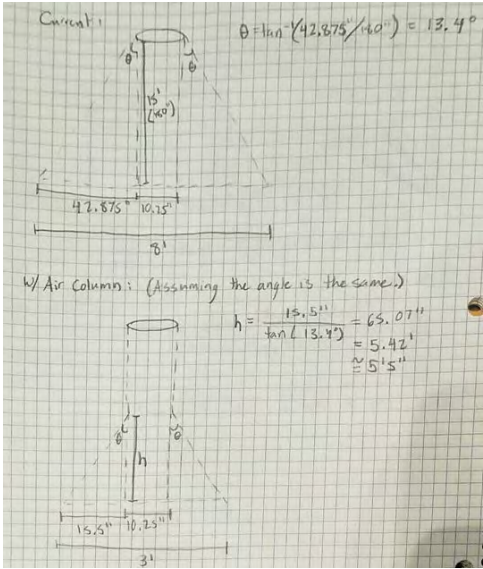 Current:
θ = tan⁻¹(42.875"/180") = 13.4°
θ
θ
15'
(180")
42.875" 10.25"
8'
W/ Air Column: (Assuming the angle is the same.)
h = 15.5" / tan(13.4°) = 65.07"
= 5.42'
≅ 5'5"
θ
θ
h
15.5" 10.25"
3'